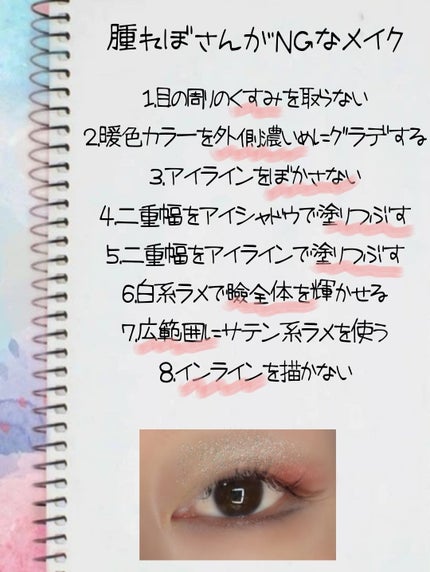 腫れぼさんがNGなメイク
1.目の周りのくすみを取らない
2.暖色カラーを外側濃いめにグラデする
3.アイラインをぼかさない
4.二重幅をアイシャドウで塗りつぶす
5.二重幅をアイラインで塗りつぶす
6.白系ラメで瞼全体を輝かせる
7.広範囲にサテン系ラメを使う
8.インラインを描かない